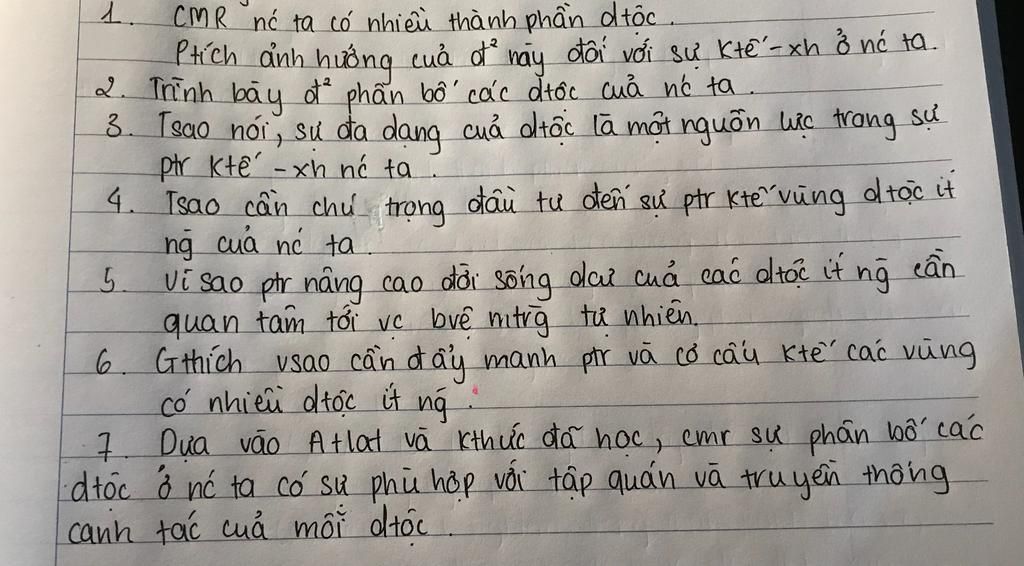 1. CMR nć ta có nhiều thành phần dtộc.
Ptích ảnh hưởng của đ² này đối với sự Ktế-xh ở nć ta.
2. Trình bày đ² phân bố các dtộc của nć ta.
3. Tsao nói, sự đa dạng của dtộc là một nguồn lực trong sự
ptr Ktế-xh nć ta.
4. Tsao cần chú trọng đầu tư đến sự ptr Ktế vùng dtộc ít
ng̃ của nć ta
5. Vì sao ptr nâng cao đời sống dcư của các dtộc ít ng̃ cần
quan tâm tới vc bvệ mtrg̃ tự nhiên.
6. Gthích vsao cần đẩy mạnh ptr và cơ cấu Ktế các vùng
có nhiều dtộc ít ng̃.
7. Dựa vào Atlat và Kthức đã học, cmr sự phân bố các
dtộc ở nć ta có sự phù hợp với tập quán và truyền thống
canh tác của mỗi dtộc.